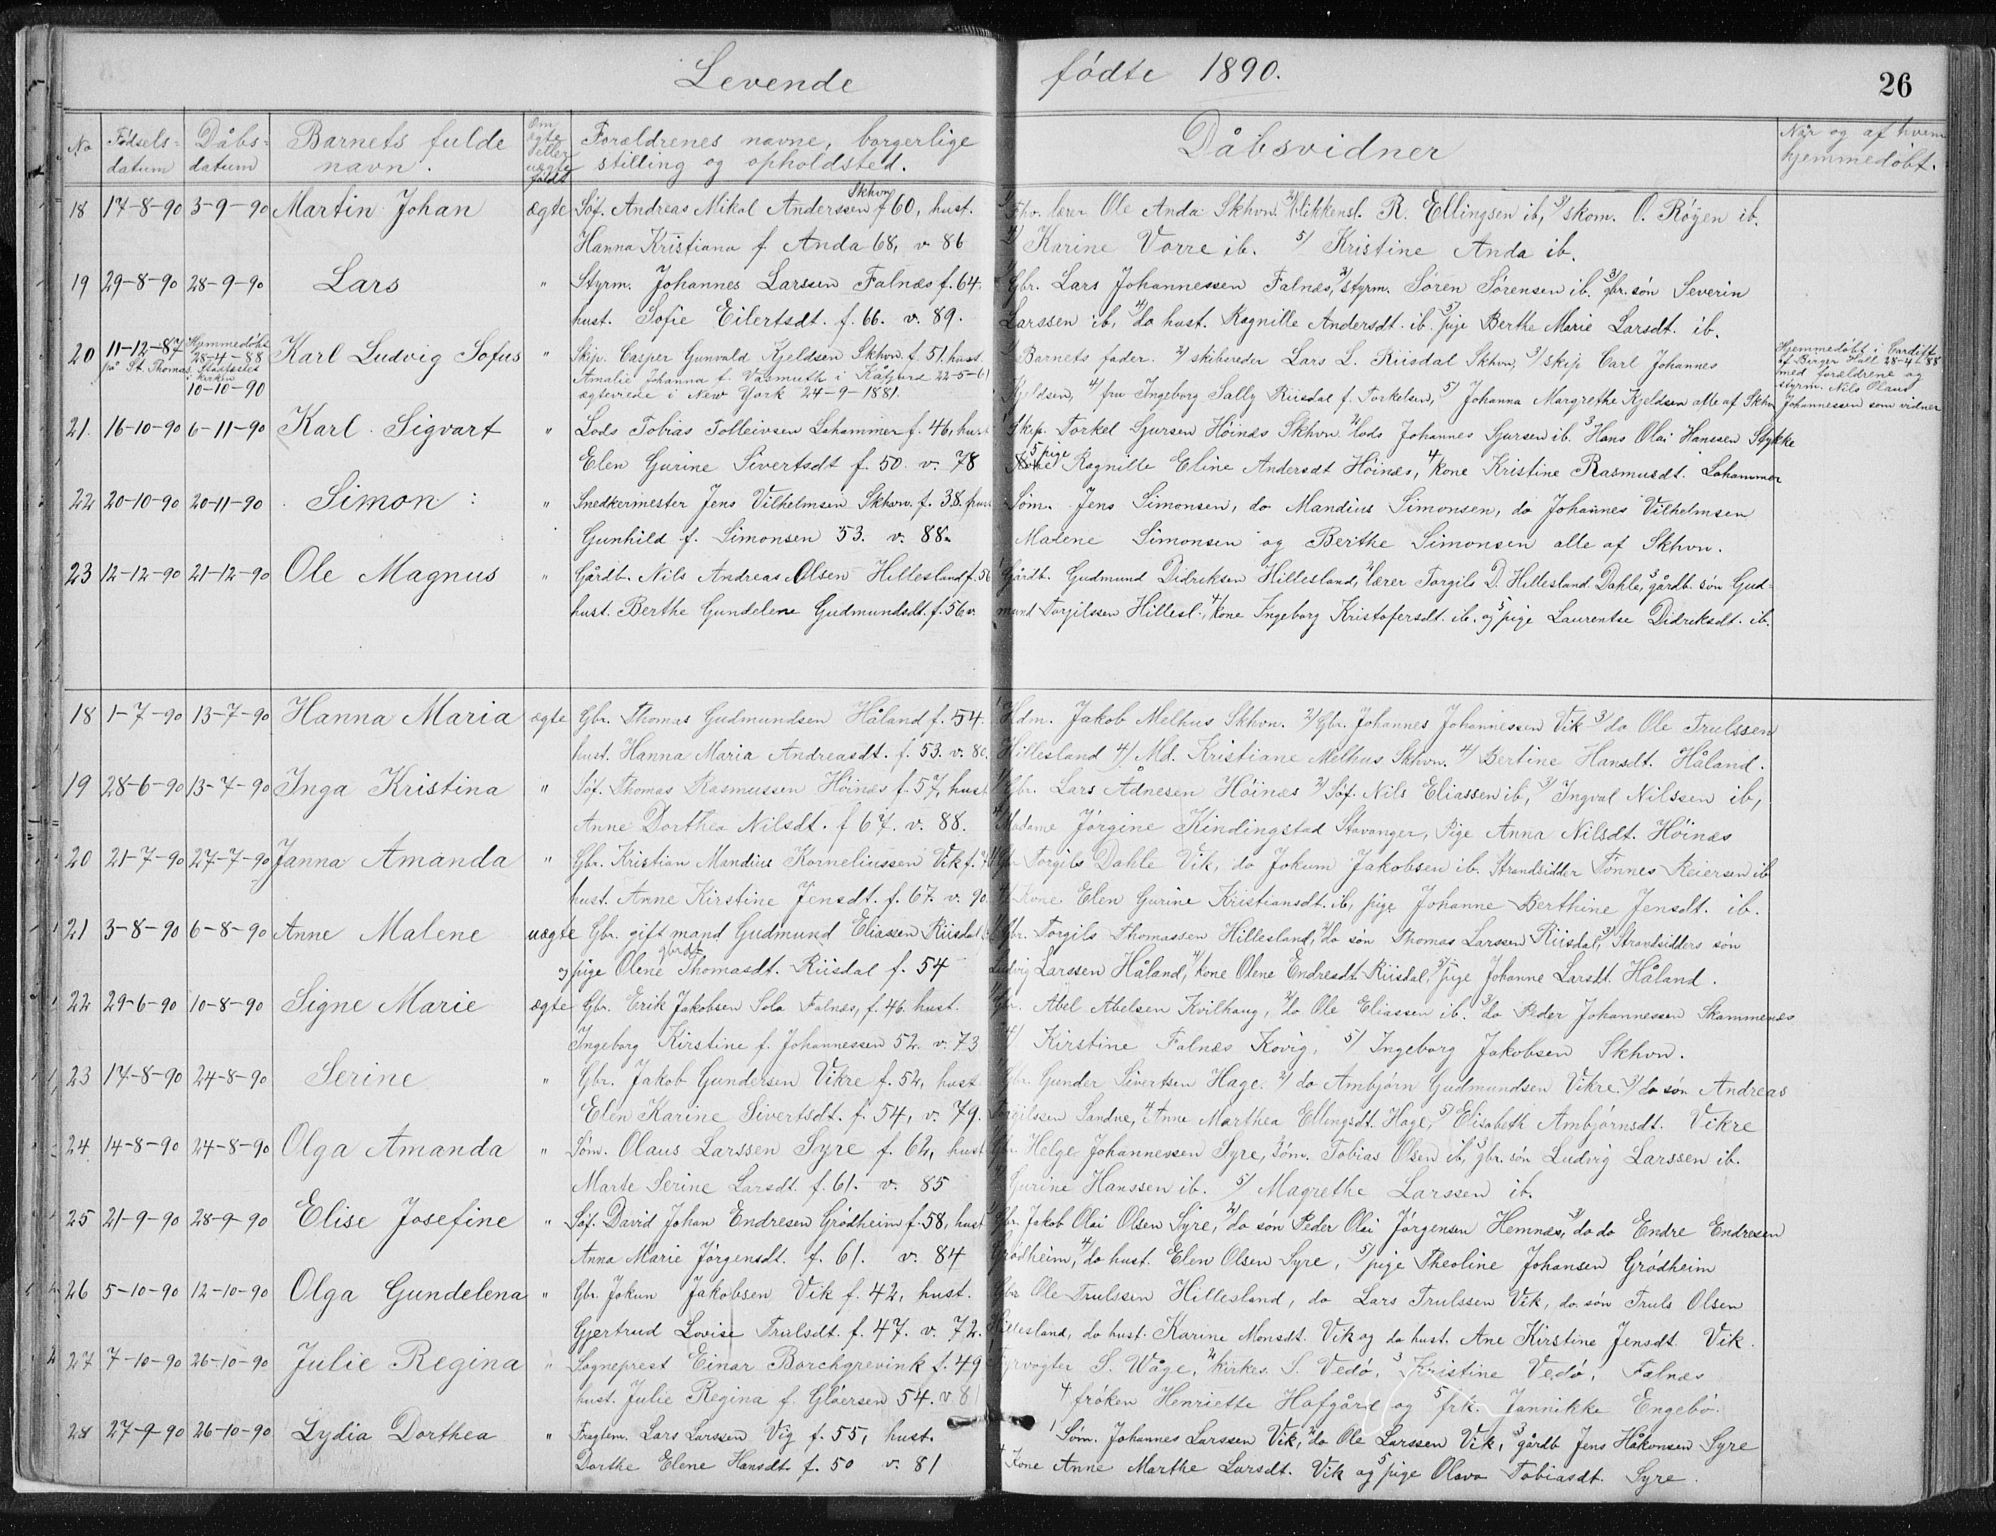 Levende fødte 1890. 26
No Fødsels-datum Dåbs-datum Barnets fulde navn. Om ægte eller uægte født Forældrenes navne, borgerlige stilling og opholdsted. Dåbsvidner Når og af hvem hjemmedøbt.
18 14-8-90 3-9-90 Martin Johan ægte Søf. Andreas Mikal Anderssen Skhvn f 60, hust. Fhv. lærer Ole Anda Skhvn. 2/ blikkensl. R. Ellingsen ib, 3/ skom. O. Røyen ib.
Hanna Kristiana f. Anda 68, v. 86 4/ Karine Vorre ib. 5/ Kristine Anda ib.
19 29-8-90 28-9-90 Lars " Styrm. Johannes Larssen Falnæs f. 64. Gbr. Lars Johannessen Falnæs, 2/ styrm. Søren Sørensen ib. 3/ gbr. søn Severin
hust. Sofie Eilertsdt. f. 66. v. 89. Larssen ib, 4/ do hust. Ragnille Andersdt. ib. 5/ pige Berthe Marie Larsdt. ib.
20 11-12-87 på St. Thomas Hjemmedøbt 28-4-88 Stadfæstet i kirken 10-10-90 Karl Ludvig Sofus " Skip. Casper Gunvald Kjeldsen Skhvn. f. 51, hust. 1/ Barnets fader. 2/ skibsreder Lars L. Riisdal Skhvn, 3/ skip Carl Johannes Hjemmedøbt i Cardiff af Birger Hall 28-4-88
Amalie Johanna f. Vasmuth i Kåfjord 22-5-61 Kjeldsen, 4/ fru Ingeborg Sally Riisdal f. Torkelsen, 5/ Johanna Margrethe Kjeldsen alle af Skhvn med forældrene og styrm. Nils Olaus
ægteviede i New York 24-9-1881. Johannessen som vidner
21. 16-10-90 6-11-90 Karl Sigvart " Lods Tobias Tolleivsen Lahammer f. 46, hust 1 Skip. Torkel Sjursen Høinæs Skhvn 2 lods Johannes Sjursen ib. 3 Hans Olai Hanssen Stykke
Elen Gurine Sivertsdt f. 50. v. 78 5 pige Ragnille Eline Andersdt Høinæs, 4 kone Kristine Rasmusdt. Lahammer
22 20-10-90 20-11-90 Simon " Snedkermester Jens Vilhelmsen Skhvn. f. 38. hust Søm. Jens Simonsen, do Mandius Simonsen, do Johannes Vilhelmsen
Gunhild f. Simonsen 53. v. 88. Malene Simonsen og Berthe Simonsen alle af Skhvn.
23 12-12-90 21-12-90 Ole Magnus " Gårdb. Nils Andreas Olsen Hillesland f. 5 Gårdb. Gudmund Didriksen Hillesland, 2 lærer Torgils D. Hillesland Dahle, 3 gårdb. søn Gud-
hust. Berthe Gundelene Gudmundsdt. f. 56 v. mund Torgilssen Hillesl., 4/ kone Ingeborg Kristofersdt. ib. og 5 pige Laurentse Didriksdt. ib.
18 1-7-90 13-7-90 Hanna Maria ægte Gbr. Thomas Gudmundsen Håland f. 54. Hdm. Jakob Melhus Skhvn. 2/ Gbr. Johannes Johannessen Vik 3/ do Ole Trulssen
hust. Hanna Maria Andreasdt. f. 53. v. 80. Hillesland 4/ Md. Kristiane Melhus Skhvn. 4/ Bertine Hansdt. Håland.
19 28-6-90 13-7-90 Inga Kristina " Søf. Thomas Rasmussen Høinæs f. 57, hust 1/ Gbr. Lars Ådnesen Høinæs 2/ Søf. Nils Eliassen ib, 3/ Ingval Nilssen ib,
Anne Dorthea Nilsdt. f 67. v. 88. 4 Madame Jørgine Kindingstad Stavanger, Pige Anna Nilsdt. Høinæs
20 21-7-90 27-7-90 Janna Amanda " Gbr. Kristian Mandius Korneliussen Vik f. Gbr Torgils Dahle Vik, do Jokum Jakobsen ib. Strandsidder Tønnes Reiersen ib
hust. Anne Kirstine Jensdt. f. 67. v. 90. 4/ kone Elen Gurine Kristiansdt. ib, pige Johanne Berthine Jensdt. ib.
21 3-8-90 6-8-90 Anne Malene uægte Gbr. gift mand Gudmund Eliassen Riisdal 1/ Gbr. Torgils Thomassen Hillesland, 2/ do søn Thomas Larssen Riisdal, 3/ Strandsidders søn
og pige Olene Thomasdt. Riisdal f. 54 Ludvig Larssen Håland, 4/ kone Olene Endresdt Riisdal, 5/ pige Johanne Larsdt. Håland.
22 29-6-90 10-8-90 Signe Marie ægte Gbr. Erik Jakobsen Sola Falnæs, f. 46. hust. Gbr. Abel Abelsen Kvilhaug, 2/ do Ole Eliassen ib. 3/ do Peder Johannessen Skammenæs
Ingeborg Kirstine f. Johannessen 52. v. 73 4/ Kirstine Falnæs Kovig, 5/ Ingeborg Jakobsen Skhvn.
23 14-8-90 24-8-90 Serine " Gbr. Jakob Gundersen Vikre f. 52, hust Gbr. Gunder Sivertsen Hage. 2/ do Ambjørn Gudmundsen Vikre. 3/ do søn Andreas
Elen Karine Sivertsdt. f. 54, v. 79. Torgilssen Sandve, 4 Anne Marthea Ellingsdt. Hage, 5/ Elisabeth Ambjørnsdt. Vikre
24 14-8-90 24-8-90 Olga Amanda " Søm. Olaus Larssen Syre f. 62, hust Gbr. Helge Johannessen Syre, 2 søm. Tobias Olsen ib, 3 gbr. søn Ludvig Larssen ib.
Marte Serine Larsdt. f. 61. v. 85 4/ Gurine Hanssen ib. 5/ Magrethe Larssen ib.
25 21-9-90 28-9-90 Elise Josefine " Søf. David Johan Endresen Grødheim f. 58, hust Gbr. Jakob Olai Olsen Syre, 2/ do søn Peder Olai Jørgensen Hemnæs, 3/ do do Endre Endresen
Anna Marie Jørgensdt. f. 61. v. 84 Grødheim, 4/ do hust. Elen Olsen Syre, 5/ pige Theoline Johansen Grødheim
26 5-10-90 12-10-90 Olga Gundelena " Gbr. Jokun Jakobsen Vik f. 42, hust. Gbr Ole Trulssen Hillesland, do Lars Trulssen Vik, do. søn Truls Olsen
Gjertrud Lovise Trulsdt. f. 47. v. 72. Hillesland, do hust. Karine Monsdt. Vik og do hust. Ane Kirstine Jensdt Vik.
27 7-10-90 26-10-90 Julie Regina " Sogneprest Einar Borchgrevink f. 49 Fyrvogter S. Wåge, 2/ Kirkes. S. Vedø, 3 Kristine Vedø, Falnæs
hust. Julie Regina f. Gløersen 54. v 8 4 frøken Henriette Hafgård og 5 frk. Jannikke Engebø.
28 27-9-90 26-10-90 Lydia Dorthea " Fragtem. Lars Larssen Vig f. 55, hust. 1 Søm. Johannes Larssen Vik, 2 do Ole Larssen Vik, 3 gårdb Jens Håkonsen Syre
Dorthe Elene Hansdt. f. 50 v. 81 4 Kone Anne Marthe Larsdt. Vik og 5 pige Olava Tobiasdt. Syre.